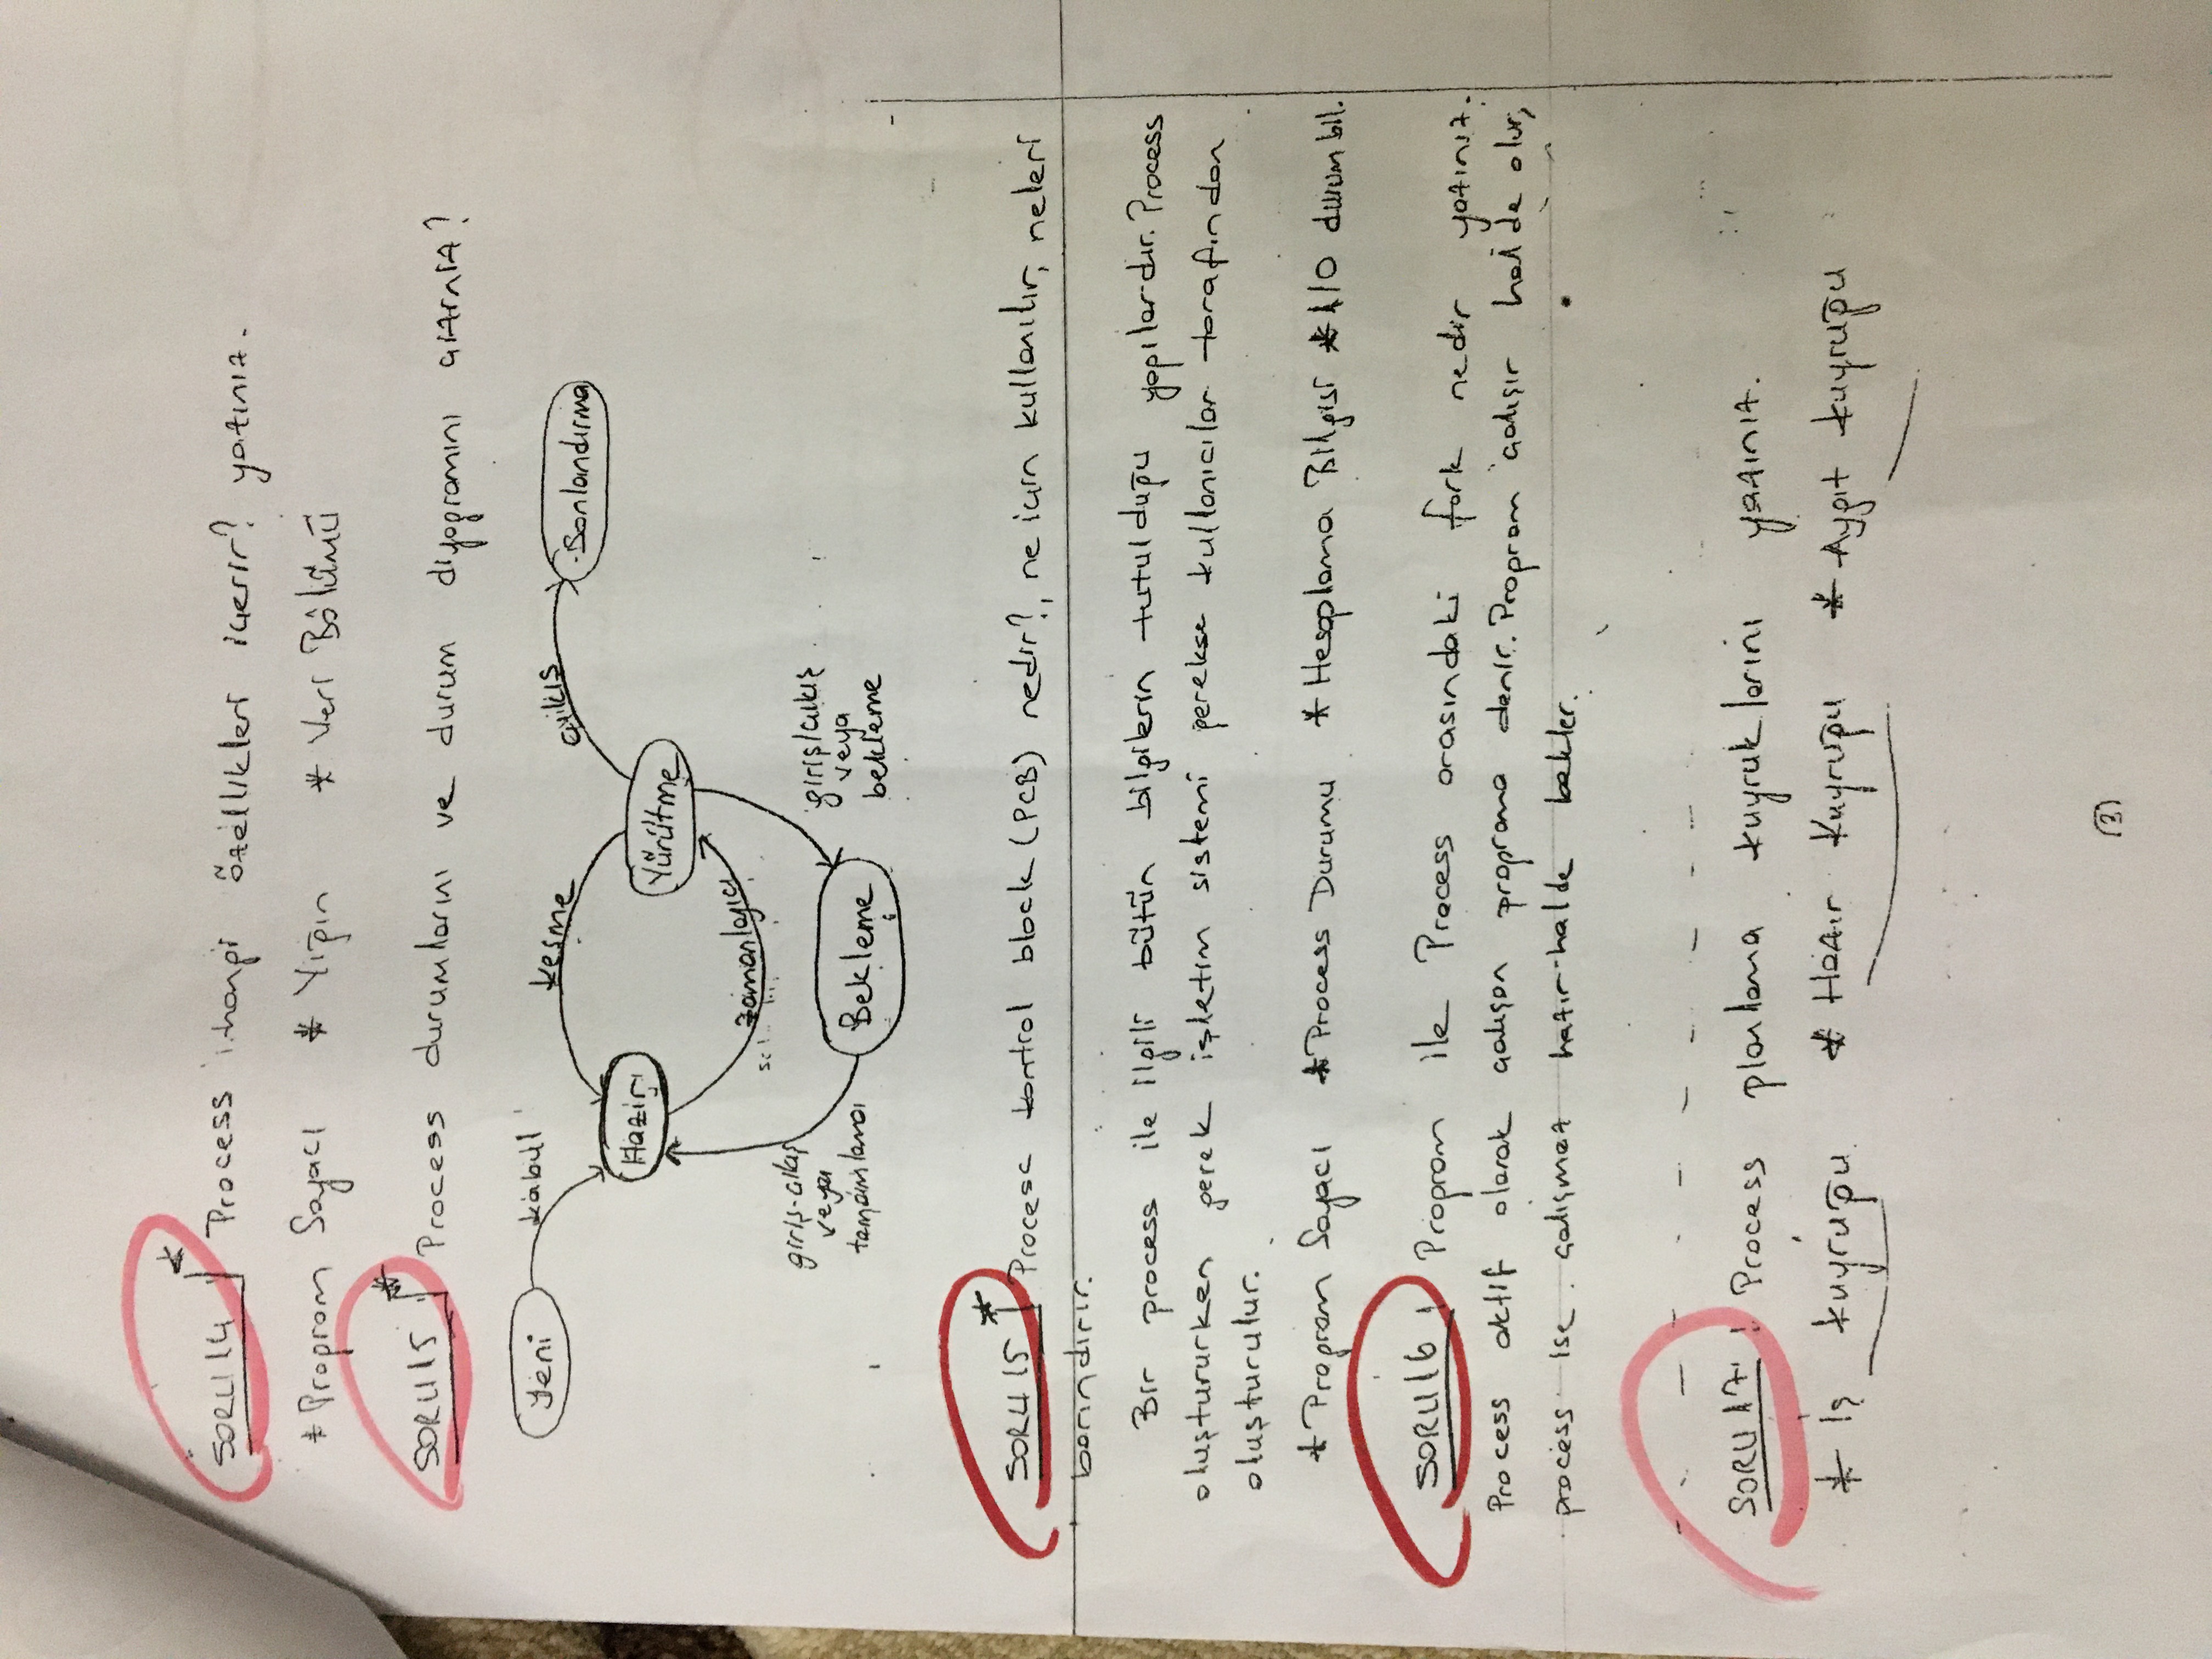 SORU 14 * Process hangi özellikleri içerir? yazınız.
* Program Sayacı * Yığın * Veri Bölümü
SORU 15 * Process durumlarını ve durum diyogramını çiziniz?
Yeni kabul kesme çıkıs Sonlandırma
Hazir Yürütme
zamanlayıcı
giriş-çıkış
veya
tamamlama
Bekleme
giriş/çıkış
veya
bekleme
SORU 15 * Process kontrol block (PCB) nedir?, ne için kullanılır, neleri
barındırır.
Bir process ile ilgili bütün bilgilerin tutulduğu yapılardır. Process
oluştururken gerek işletim sistemi gerekse kullanıcılar tarafından
oluşturulur.
* Program Sayacı * Process Durumu * Hesaplama Bilgisi * I/O durum bil.
SORU 16 Program ile Process arasındaki fark nedir yazınız.
Process aktif olarak çalışan programa denir. Program çalışır halde olur,
process ise çalışmaz hazır halde bekler.
SORU 17 Process planlama kuyruklarini yazınız.
* İş kuyruğu * Hazır Kuyruğu * Aygıt kuyruğu
3